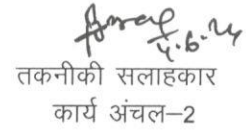 4.6.24
तकनीकी सलाहकार
कार्य अंचल–2